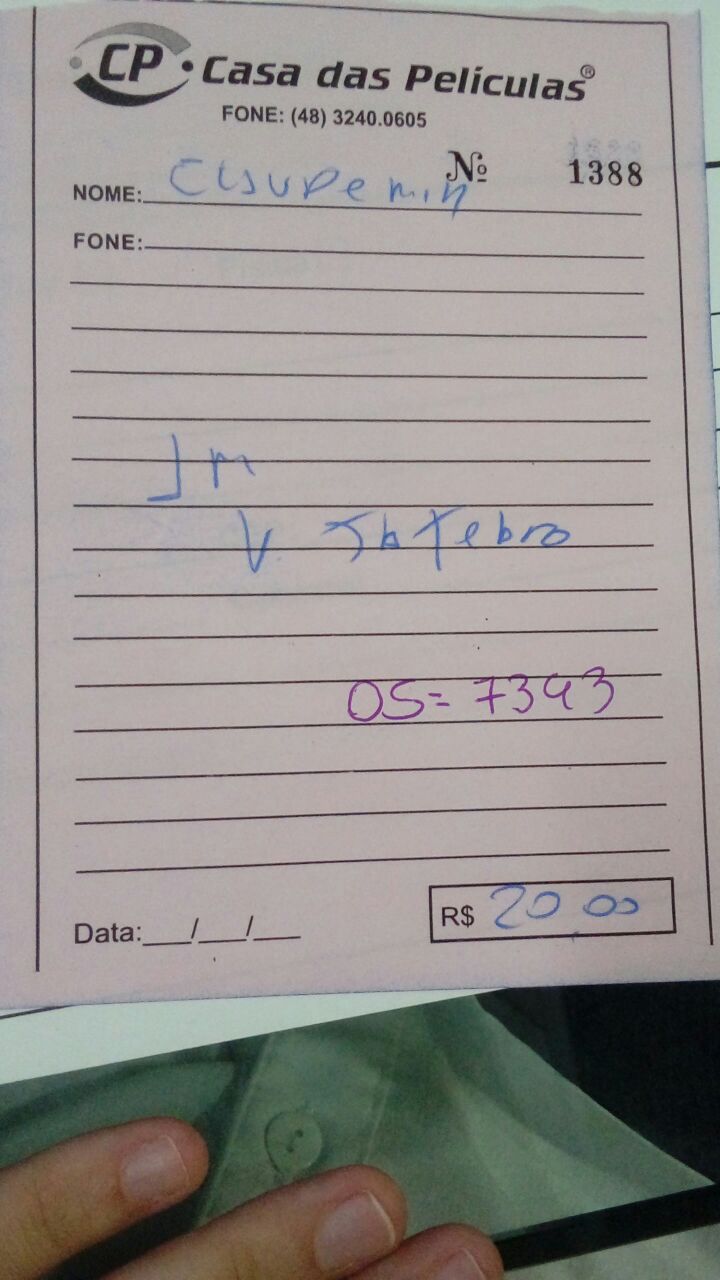 CP Casa das Películas®
FONE: (48) 3240.0605
Nº 1388
NOME: Claudemin
FONE:
V.
OS= 7343
Data: __/__/__
R$ 20,00